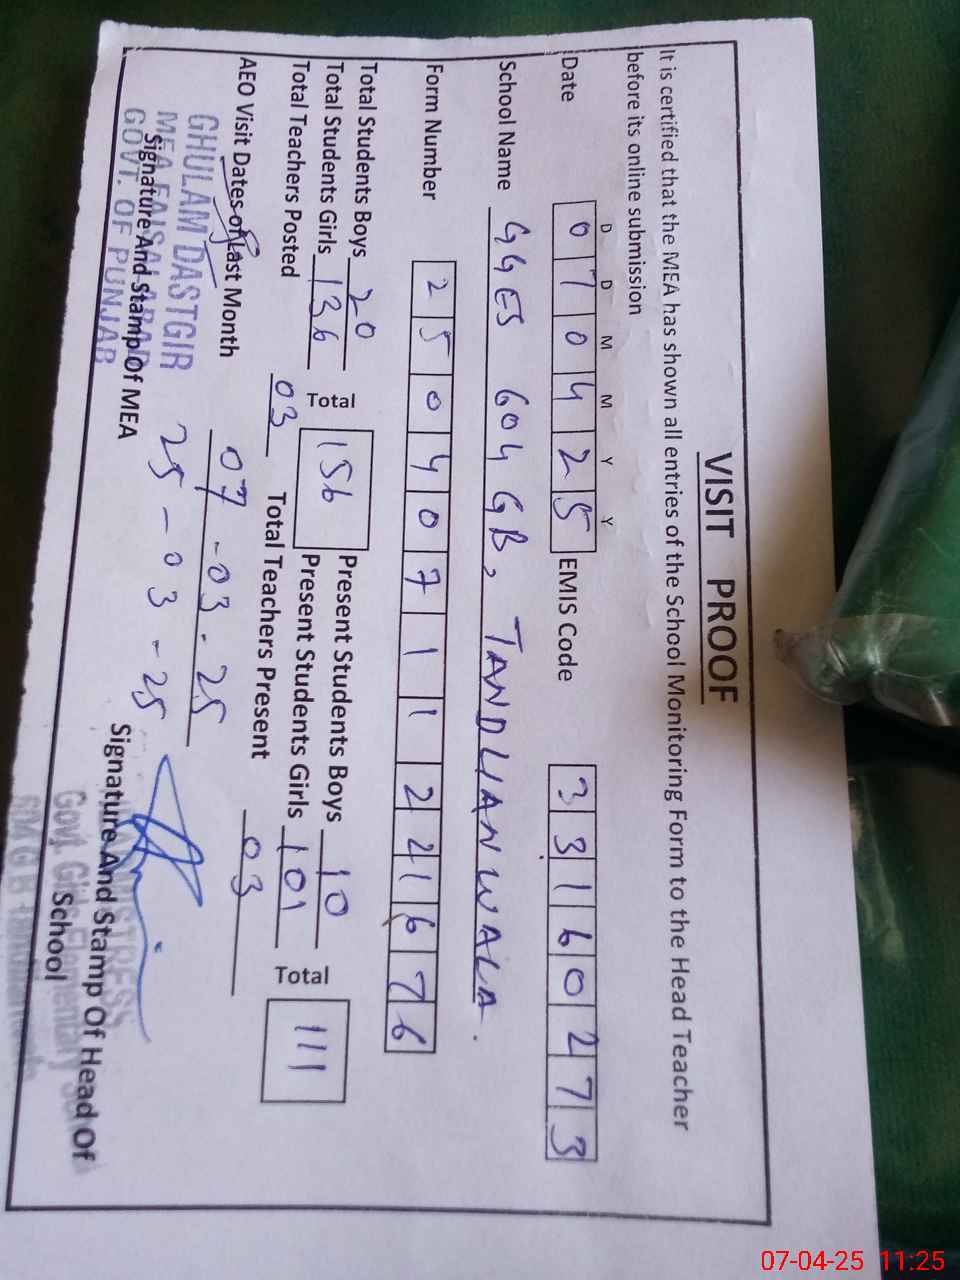 VISIT PROOF
It is certified that the MEA has shown all entries of the School Monitoring Form to the Head Teacher
before its online submission
D D M M Y Y
Date 0 7 0 4 2 5 EMIS Code 3 3 1 6 0 2 7 3
School Name GGES 604 GB, TANDLIANWALA.
Form Number 2 5 0 4 0 7 1 1 2 2 1 6 7 6
Total Students Boys 20 Total 156 Present Students Boys 10 Total 111
Total Students Girls 136 Present Students Girls 101
Total Teachers Posted 03 Total Teachers Present 03
AEO Visit Dates of Last Month 07-03-25
25-03-25
GHULAM DASTGIR
MEA FAISALABAD
GOVT. OF PUNJAB
Signature And Stamp Of MEA
Signature And Stamp Of Head Of
School
Govt. Girls Elementary
07-04-25 11:25